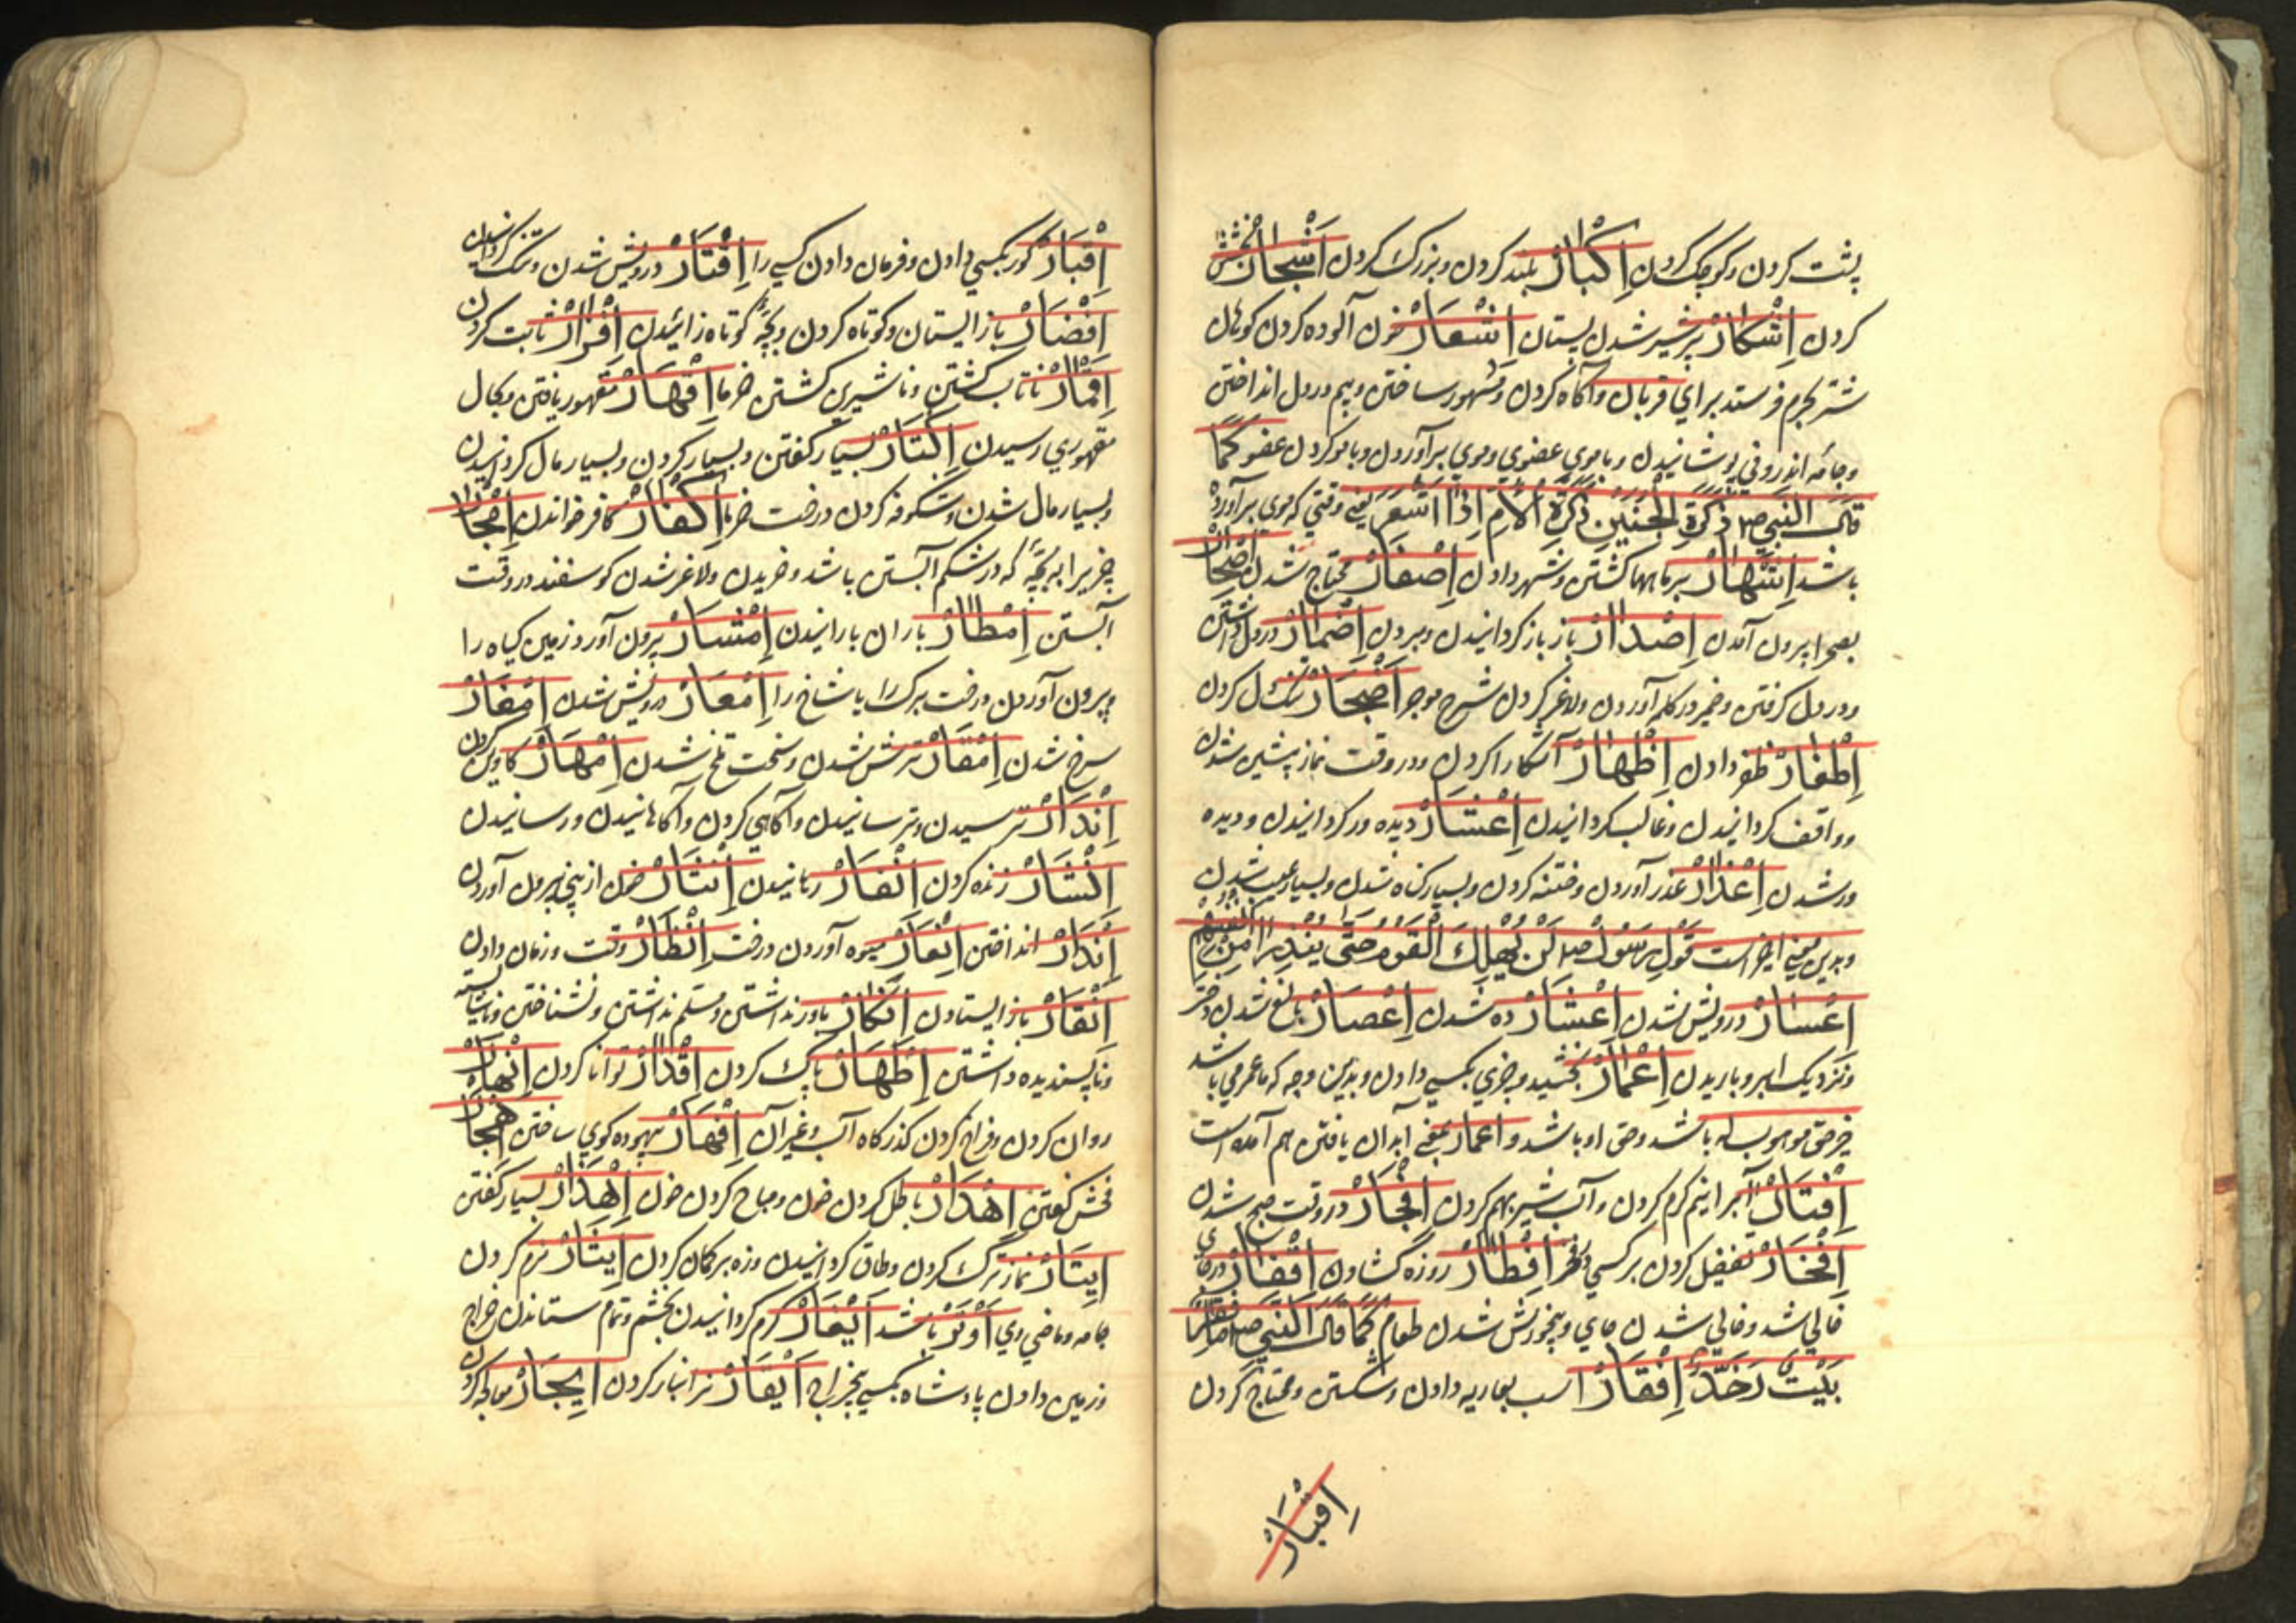 پشت کردن و کوچک کردن اِکْبَارْ بلند کردن و بزرک کردن اَشْجَارْ
کردن اِشْکَارْ پرشیر شدن پستان اِشْعَارْ خون آلوده کردن کوهان
شتر بحرم فرستد برای قربان و آکاه کردن و مشهور ساختن و بیم در دل انداختن
و جامه اندرونی پوشانیدن و با موی عضوی و موی برآوردن و با مو کردن عضو کَمَا
قَالَ النَّبِي صم ذَکوةِ الْجَنِیْنِ ذَکوةِ الْاُمِّ اِذَا اَشْعَرَ یعنے وقتی که موی برآورده
باشد اِشْهَارْ بر ماهها کشتن و شهر دادن اِصْفَارْ محتاج شدن اِصْحَارْ
بصحرا بیرون آمدن اِصْدَارْ باز باز کردانیدن و بردن اِضْمَارْ در دل داشتن
و در دل کرفتن و ضمیر در کلمه آوردن و لاغر کردن اِضْجَارْ تنک دل کردن
اِظْفَارْ ظفر دادن اِظْهَارْ آشکارا کردن و در وقت نماز پیشین شدن
و واقف کردانیدن و غالب کردانیدن اِعْثَارْ دیده ور کردانیدن و دیده
ور شدن اِعْذَارْ عذر آوردن و ختنه کردن و بسیار کناه شدن و بسیار عیب شدن
و بدین معنے اخیر است قَوْلِ رَسُولْ صم لَنْ یَهْلِكَ الْقَوْمُ حَتّی یُعْذِرُوا مِنْ اَنْفُسِهِمْ
اِعْسَارْ درویش شدن اِعْشَارْ ده شدن اِعْصَارْ بالغ شدن دختر
و نزدیک ابر و باریدن اِعْمَارْ بخشیدن چیزی بکسی دادن و بدین وجه که ما عمر می باشد
چیز حق موهوب له باشد و حق او باشد و اعمار بمعنے آبدان یافتن هم آمده است
اِفْتَارْ آبرا نیم کرم کردن و آب شیر بهم کردن اِفْجَارْ در وقت صبح شدن
اِفْخَارْ تفضیل کردن بر کسی در فخر اِفْطَارْ روزه کشادن اِقْفَارْ
خالی شد و خالی شدن جای و بیخورش شدن طعام کَمَا قَالَ النَّبِي صم مَا اَقْفَرَ
بَیْتٌ فِیهِ خَلٌّ اِفْقَارْ اسب بعاریه دادن و شکستن و محتاج کردن
اِقْبَارْ
اِقْبَارْ کور بکسی دادن و فرمان دادن کسی را اِقْتَارْ درویش شدن و تنک کردانیدن
اِقْصَارْ باز ایستادن و کوتاه کردن و بچّهٔ کوتاه زائیدن اِقْرَارْ ثابت کردن
اِقْمَارْ ناتاب کشتن و ناشیرین کشتن خرما اِقْهَارْ مقهور یافتن و بحال
مقهوری رسیدن اِکْثَارْ بسیار کفتن و بسیار کردن و بسیار مال کردانیدن
و بسیار مال شدن و شکوفه کردن درخت خرما اِکْفَارْ کافر خواندن اِمْجَارْ
چیزیرا به بچّه که در شکم آبستن باشد و خریدن و لاغر شدن کوسفند در وقت
آبستن اِمْطَارْ باران بارانیدن اِمْشَارْ بیرون آورد زمین کیاه را
و بیرون آوردن درخت برک را یا شاخ را اِمْعَارْ درویش شدن اِمْغَارْ
سرخ شدن اِمْقَارْ ترش شدن و سخت تلخ شدن اِمْهَارْ کاوین کردن
اِنْذَارْ ترسیدن و ترسانیدن و آکاهی کردن و آکاهانیدن و رسانیدن
اِنْشَارْ زنده کردن اِنْفَارْ رمانیدن اِنْثَارْ خون از بینی بیرون آوردن
اِنْدَارْ انداختن اِنْعَارْ میوه آوردن درخت اِنْظَارْ وقت و زمان دادن
اِنْقَارْ باز ایستادن اِنْکَارْ باور نداشتن و مسلم نداشتن و نشناختن و ناشایسته
و ناپسندیده داشتن اِطْهَارْ پاک کردن اِقْدَارْ توانا کردن اِنْهَارْ
روان کردن و فراخ کردن کذرکاه آب و غیر آن اِهْهَارْ بیهوده کوی ساختن اِهْجَارْ
فحش کفتن اِهْدَارْ باطل کردن خون و مباح کردن خون اِهْذَارْ بسیار کفتن
اِیتَارْ نماز ترک کردن و طاق کردانیدن و زه بر کمان کردن اِیثَارْ نرم کردن
جامه و ماضی وی اَوْثَرَ باشد اِیْغَارْ کرم کردانیدن بخشم و تمام ستاندن خراج
و زمین دادن پادشاه بکسی بیخراج اِیْقَارْ نر انبار کردن اِیْجَارْ